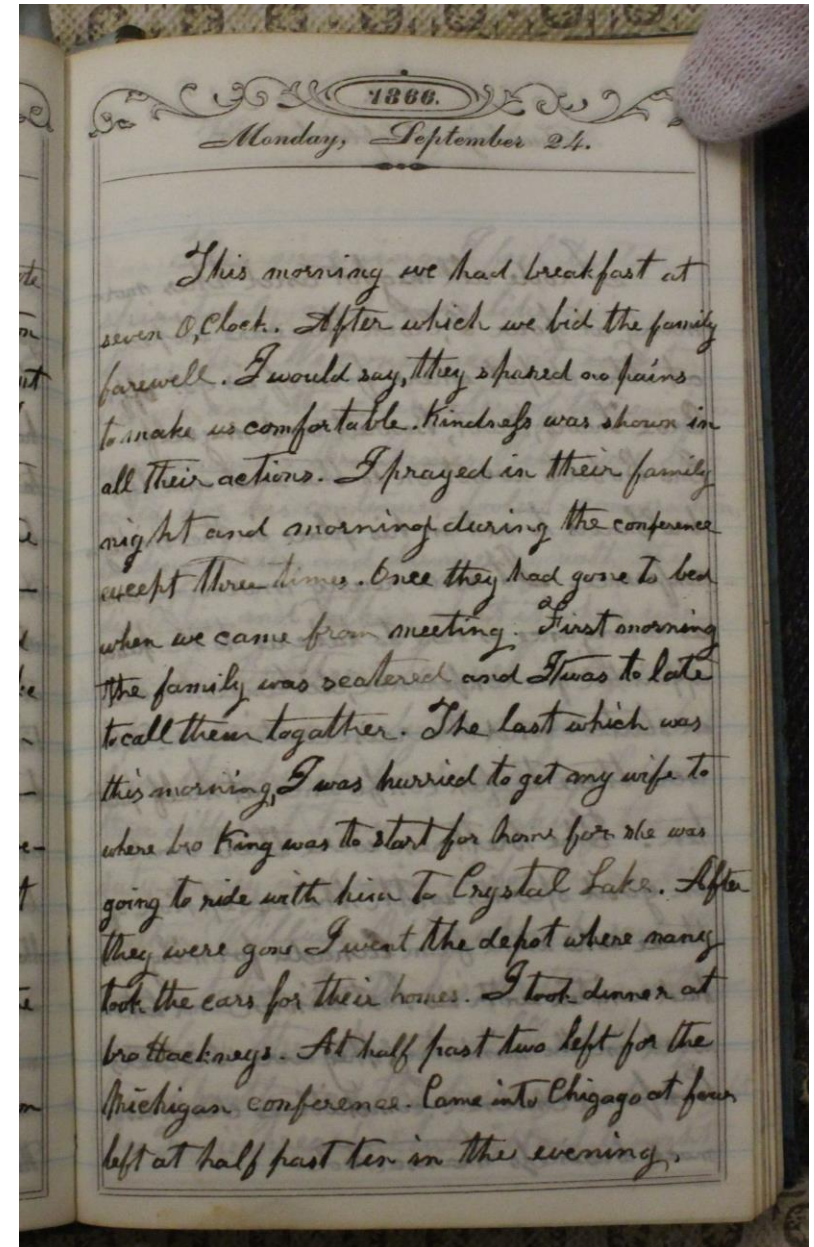 1866.
Monday, September 24.
This morning we had breakfast at
seven O,Clock. After which we bid the family
farewell. I would say, they spared no pains
to make us comfortable. Kindness was shown in
all their actions. I prayed in their family
night and morning during the conference
except three times. Once they had gone to bed
when we came from meeting. First morning
the family was scatered and It was to late
to call them togather. The last which was
this morning, I was hurried to get my wife to
where bro King was to start for home for she was
going to ride with him to Crystal Lake. After
they were gone I went the depot where many
took the cars for their homes. I took dinner at
bro Hackneys. At half past two left for the
Michigan conference. Came into Chigago at four
left at half past ten in the evening.